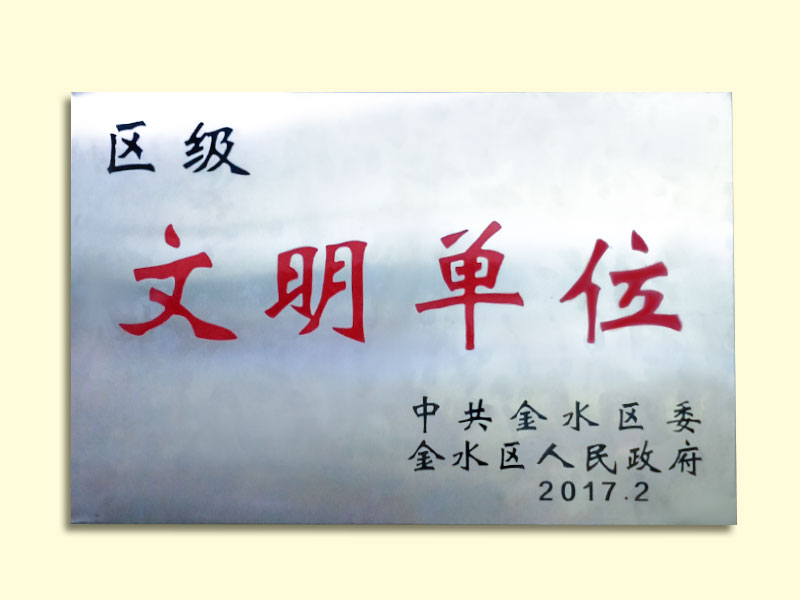 区级
文明单位
中共金水区委
金水区人民政府
2017.2